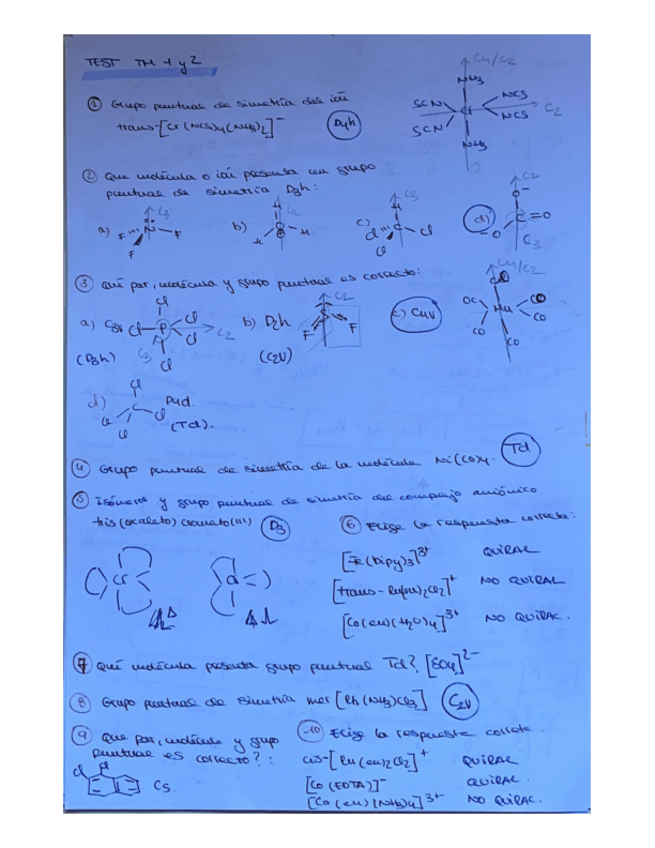 TEST TM 1 y 2
C4/C2
NH3
① Grupo puntual de simetría del ión
SCN Cr NCS C2
trans-[Cr(NCS)4(NH3)2]⁻ D4h
SCN NCS
NH3
② Que molécula o ión presenta un grupo
puntual de simetría D3h:
a) F N F F C3
b) H H C2
c) Cl C Cl Cl C3
d) O⁻ C =O ⁻O C2 C3
③ Qué par, molécula y grupo puntual es correcto:
a) C3v Cl P Cl Cl Cl Cl C2 C3 (D3h)
b) D2h S F F C2 (C2v)
c) C4v C4/C2 OC CO CO CO
d) Cl C Cl Cl Cl (Td).
④ Grupo puntual de simetría de la molécula Ni(CO)4. Td
⑤ Isómeros y grupo puntual de simetría del complejo aniónico
tris(oxalato)cromato(III) D3
Cr Δ Λ
⑥ Elige la respuesta correcta:
(bipy)3]³⁺ QUIRAL
[trans- Cl2]⁺ NO QUIRAL
[Co(en)(H2O)4]³⁺ NO QUIRAL.
⑦ Qué molécula presenta grupo puntual Td? [SO4]²⁻
⑧ Grupo puntual de simetría mer[Rh(NH3)Cl3] C2v
⑨ Que par, molécula y grupo
puntual es correcto?:
Cl Cl Cs
⑩ Elige la respuesta correcta.
cis-[Ru(en)2Cl2]⁺ QUIRAL
[Co(EDTA)]⁻ QUIRAL.
[Co(en)(NH3)4]³⁺ NO QUIRAL.